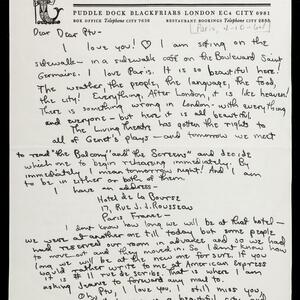 PUDDLE DOCK BLACKFRIARS LONDON EC4 CITY 6981
BOX OFFICE Telephone CITY 7638 RESTAURANT BOOKINGS Telephone CITY 2835
Dear Dear Ptw-
I love you! ♡ I am sitting on the
sidewalk - in a sidewalk café on the Boulevard Saint
Germaine. I love Paris. It is so beautiful here!
The weather, the people, the language, the food,
the city! Everything. After London, it is like heaven!
There is something wrong in London - with everything
and everyone - but here it is all beautiful.
The Living Theatre has gotten the rights to
all of Genet's plays - and tomorrow we meet
to read "the Balcony" and "the Screens" and decide
which me to begin rehearsing immediately. By
immediately I mean tomorrow night! And I am
to be in either or both of them.
I have an address -
Hotel de la Bourse
17, Rue J. J. Rousseau
Paris France -
I dont know how long we will be at that hotel -
we were at another one till today but some people
had reserved our room in advance and so we had
to move out and they moved in. So I dont know how
long we will be at the new one for sure. If you
would rather write to me at American Express
it is # 11 rue de Scribe. That is where I am
asking Jeanne to forward any mail to.
Oh, Ptw, I love you, I still miss you,